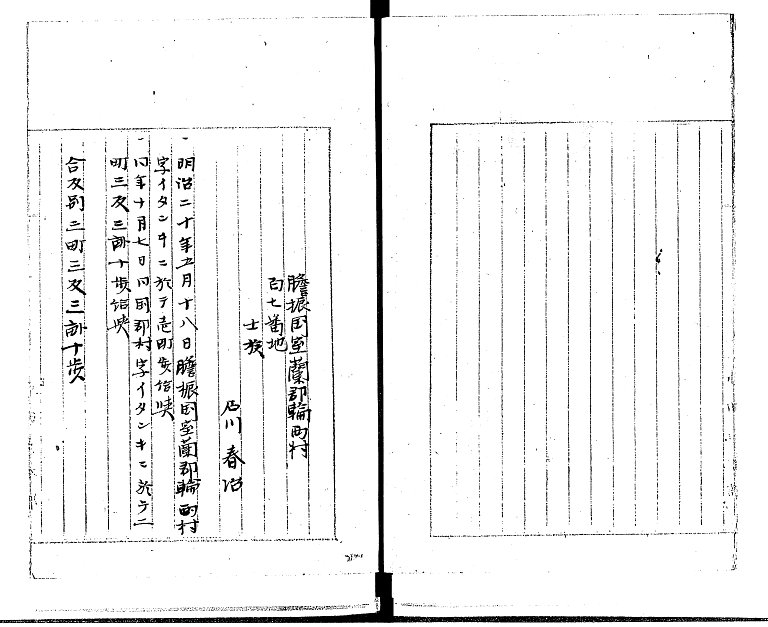 膽振国室蘭郡輪西村
百七番地
士族
石川 春治
一 明治二十年五月十八日膽振国室蘭郡輪西村
字イタンキニ於テ壱町歩給与
一 同年十月七日同国郡村字イタンキニ於テ二
町三反三畝十歩
合反別三町三反三畝十歩